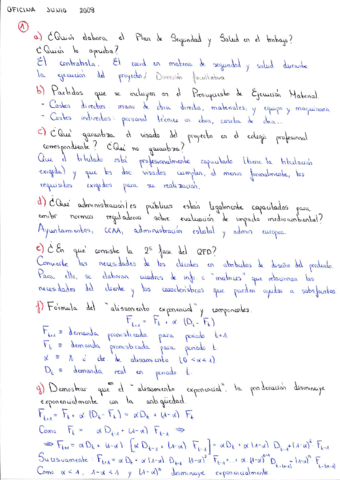 OFICINA JUNIO 2009
1
a) ¿Quién elabora el Plan de Seguridad y Salud en el trabajo?
¿Quién lo aprueba?
El contratista. El coord en materia de seguridad y salud durante
la ejecución del proyecto / Dirección facultativa
b) Partidas que se incluyen en el Presupuesto de Ejecución Material
- Costes directos: mano de obra directa, materiales, y equipo y maquinaria
- Costes indirectos: personal técnico en obra, caseta de obra...
c) ¿Qué garantiza el visado del proyecto en el colegio profesional
correspondiente? ¿Qué no garantiza?
Que el titulado está profesionalmente capacitado (tiene la titulación
exigida) y que los doc visados cumplan, al menos formalmente, los
requisitos exigidos para su realización.
d) ¿Qué administración/es públicas están legalmente capacitados para
emitir normas reguladoras sobre evaluación de impacto medioambiental?
Ayuntamientos, CCAA, administración estatal y admin europea.
e) ¿En qué consiste la 2ª fase del QFD?
Convierte las necesidades de los clientes en atributos de diseño del producto
Para ello, se elaboran cuadros de inf. o "matrices" que relacionan las
necesidades del cliente y las características que puedan ayudar a satisfacerlas
f) Fórmula del "alisamiento exponencial" y componentes
F_{t+1} = F_t + α (D_t - F_t)
F_{t+1} = demanda pronosticada para periodo t+1
F_t = demanda pronosticada para periodo t.
α = cte de alisamiento (0<α<1)
D_t = demanda real en periodo t.
g) Demostrar que el "alisamiento exponencial", la ponderación disminuye
exponencialmente con la antigüedad.
F_{t+1} = F_t + α (D_t - F_t) = αD_t + (1-α) F_t
Como F_t = αD_{t-1} + (1-α) F_{t-1} ⇒
⇒ F_{t+1} = αD_t + (1-α) [αD_{t-1} + (1-α) F_{t-1}] = αD_t + α(1-α) D_{t-1} + (1-α)² F_{t-1}
Como α<1, 1-α<1 y disminuye exponencialmente